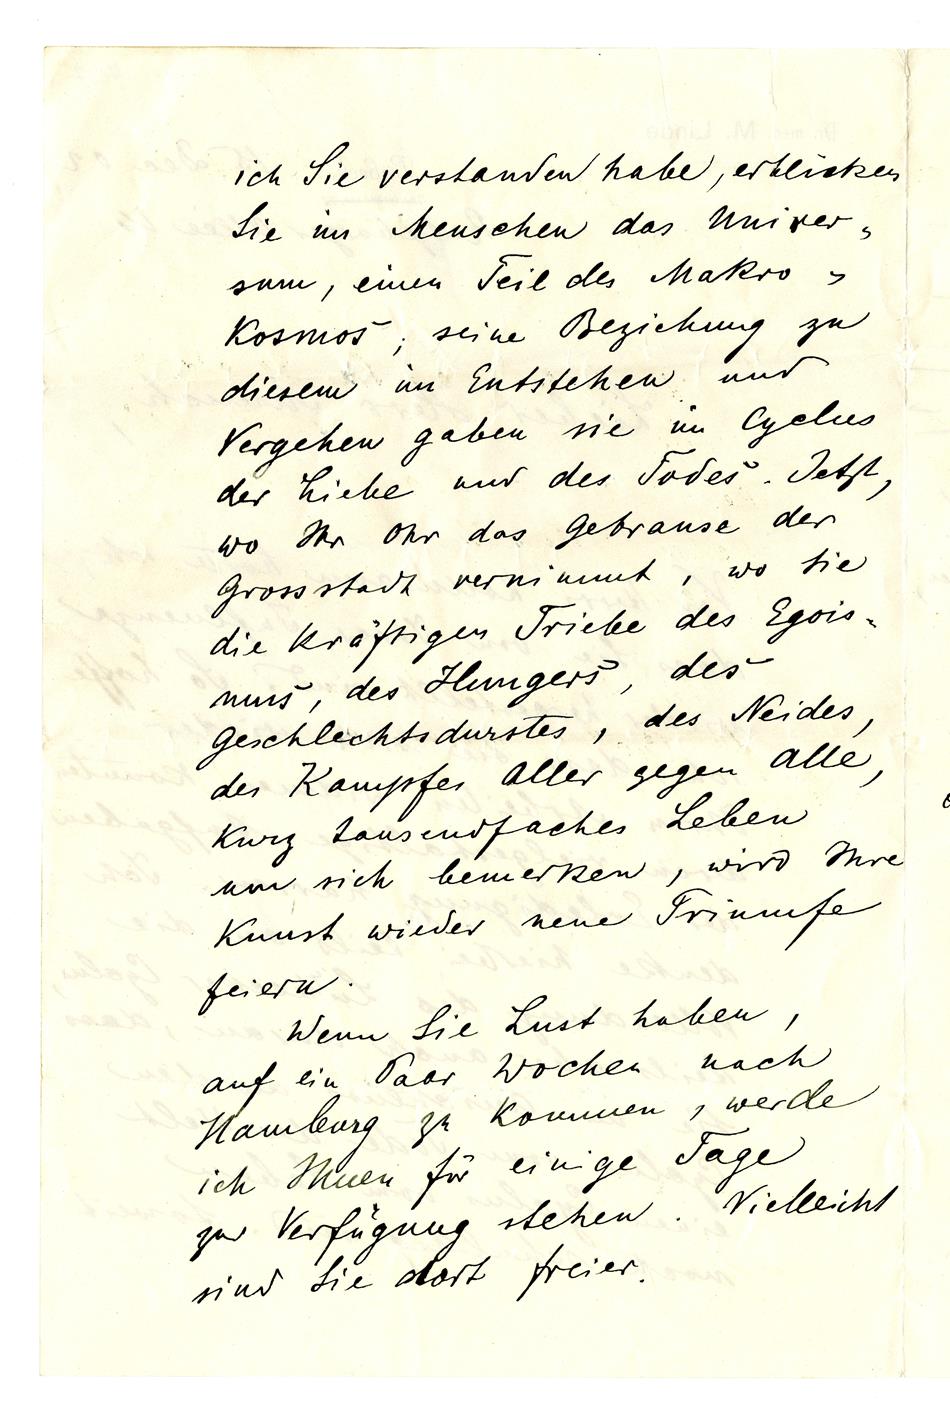 ich Sie verstanden habe, erblicken
Sie im Menschen das Univer-
sum, einen Teil des Makro-
kosmos; seine Beziehung zu
diesem im Entstehen und
Vergehen gaben sie im Cyclus
der Liebe und des Todes. Jetzt,
wo Ihr Ohr das Gebrause der
Grossstadt vernimmt, wo sie
die kräftigen Triebe des Egois-
mus, des Hungers, des
Geschlechtsdurstes, des Neides,
des Kampfes Aller gegen Alle,
kurz tausendfaches Leben
um sich bemerken, wird Ihre
Kunst wieder neue Triumfe
feiern.
Wenn Sie Lust haben,
auf ein Paar Wochen nach
Hamburg zu kommen, werde
ich Ihnen für einige Tage
zur Verfügung stehen. Vielleicht
sind Sie dort freier.